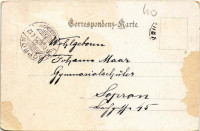 Correspondenz-Karte
40
Wohlgeboren
Johann Maar
Gymnasialschüler
Sopron
45